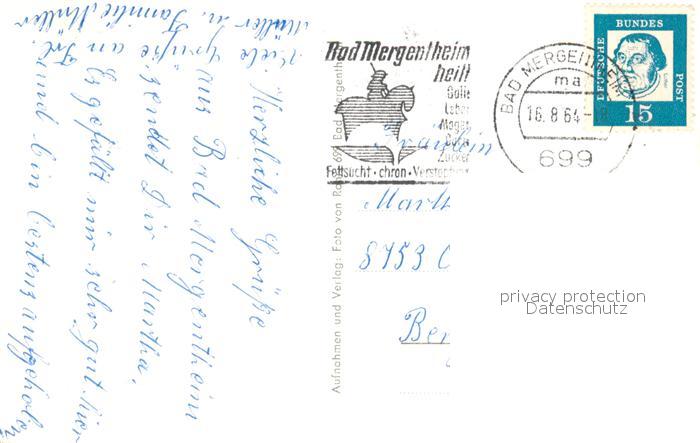 Herzliche Grüße
aus Bad Mergentheim
sendet Dir Martha.
Es gefällt mir sehr gut hier
und bin bestens aufgehoben
Viele Grüße an Frl.
Müller u. Familie Müller
Aufnahmen und Verlag: Foto von
Bad Mergenthe
Bad Mergentheim
heilt
Galle
Leber
Magen
Zucker
Fettsucht · chron · Verstopfung
BAD MERGENTHEIM
ma
16.8.64-
699
DEUTSCHE BUNDES POST
Luther
15
8753 O
privacy protection
Datenschutz